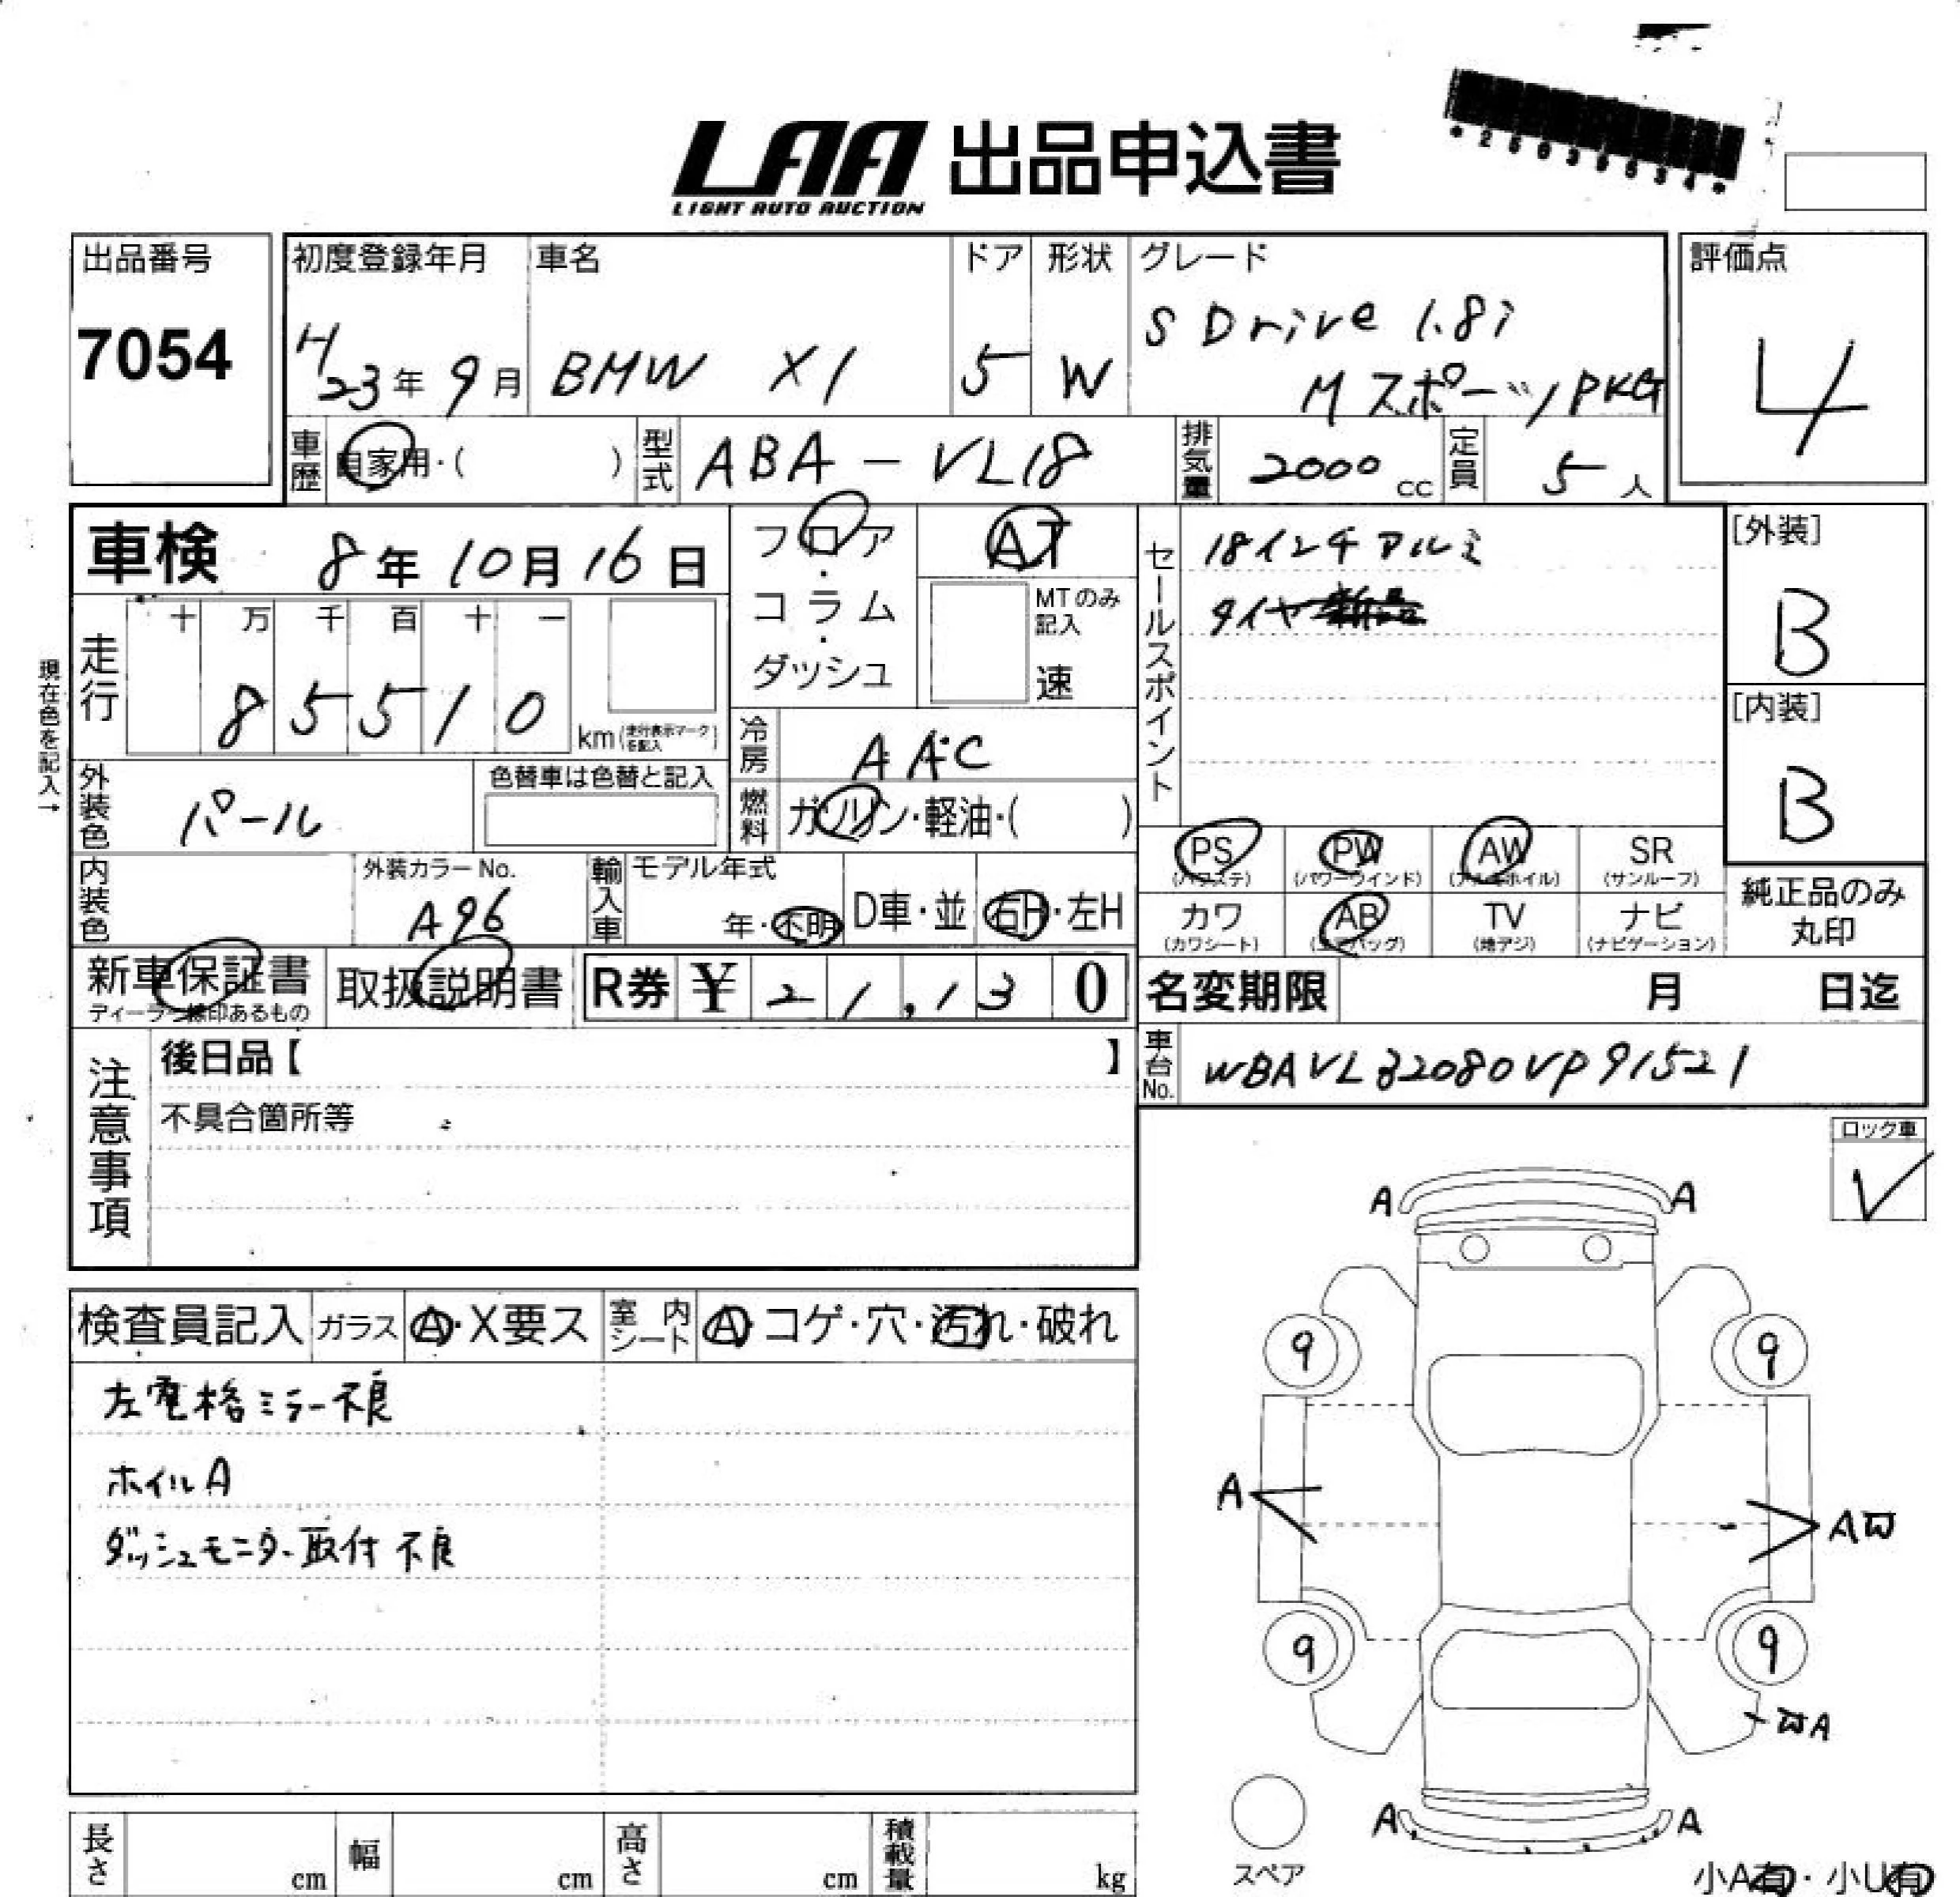 LAA 出品申込書
LIGHT AUTO AUCTION
出品番号
7054
初度登録年月
H23年9月
車名
BMW X1
ドア
5
形状
W
グレード
S Drive 1.8i
Mスポーツ PKG
評価点
4
車歴
自家用・( )
型式
ABA-VL18
排気量
2000cc
定員
5人
車検 8年10月16日
フロア・コラム・ダッシュ
AT
MTのみ記入
速
セールスポイント
18インチアルミ
タイヤ
[外装]
B
[内装]
B
現在色を記入→
走行
十 万 千 百 十 一
8 5 5 1 0
km(走行表示マークを記入)
冷房
AAC
燃料
ガソリン・軽油・( )
外装色
パール
色替車は色替と記入
内装色
外装カラーNo.
A96
輸入車
モデル年式
年・不明
D車・並
右H・左H
PS
(パワステ)
PW
(パワーウインド)
AW
(アルミホイル)
SR
(サンルーフ)
カワ
(カワシート)
AB
(エアバッグ)
TV
(地デジ)
ナビ
(ナビゲーション)
純正品のみ
丸印
新車保証書
取扱説明書
R券 ¥21,130
名変期限 月 日迄
車台No.
WBAVL32080VP91521
注意事項
後日品【 】
不具合箇所等
ロック車
検査員記入
ガラス
A・X要ス
室内シート
A・コゲ・穴・汚れ・破れ
左電格ミラー不良
ホイルA
ダッシュモニター取付不良
A A
9 9
A
A
9 9
A
A A
スペア
小A有・小U有
長さ cm
幅 cm
高さ cm
積載量 kg